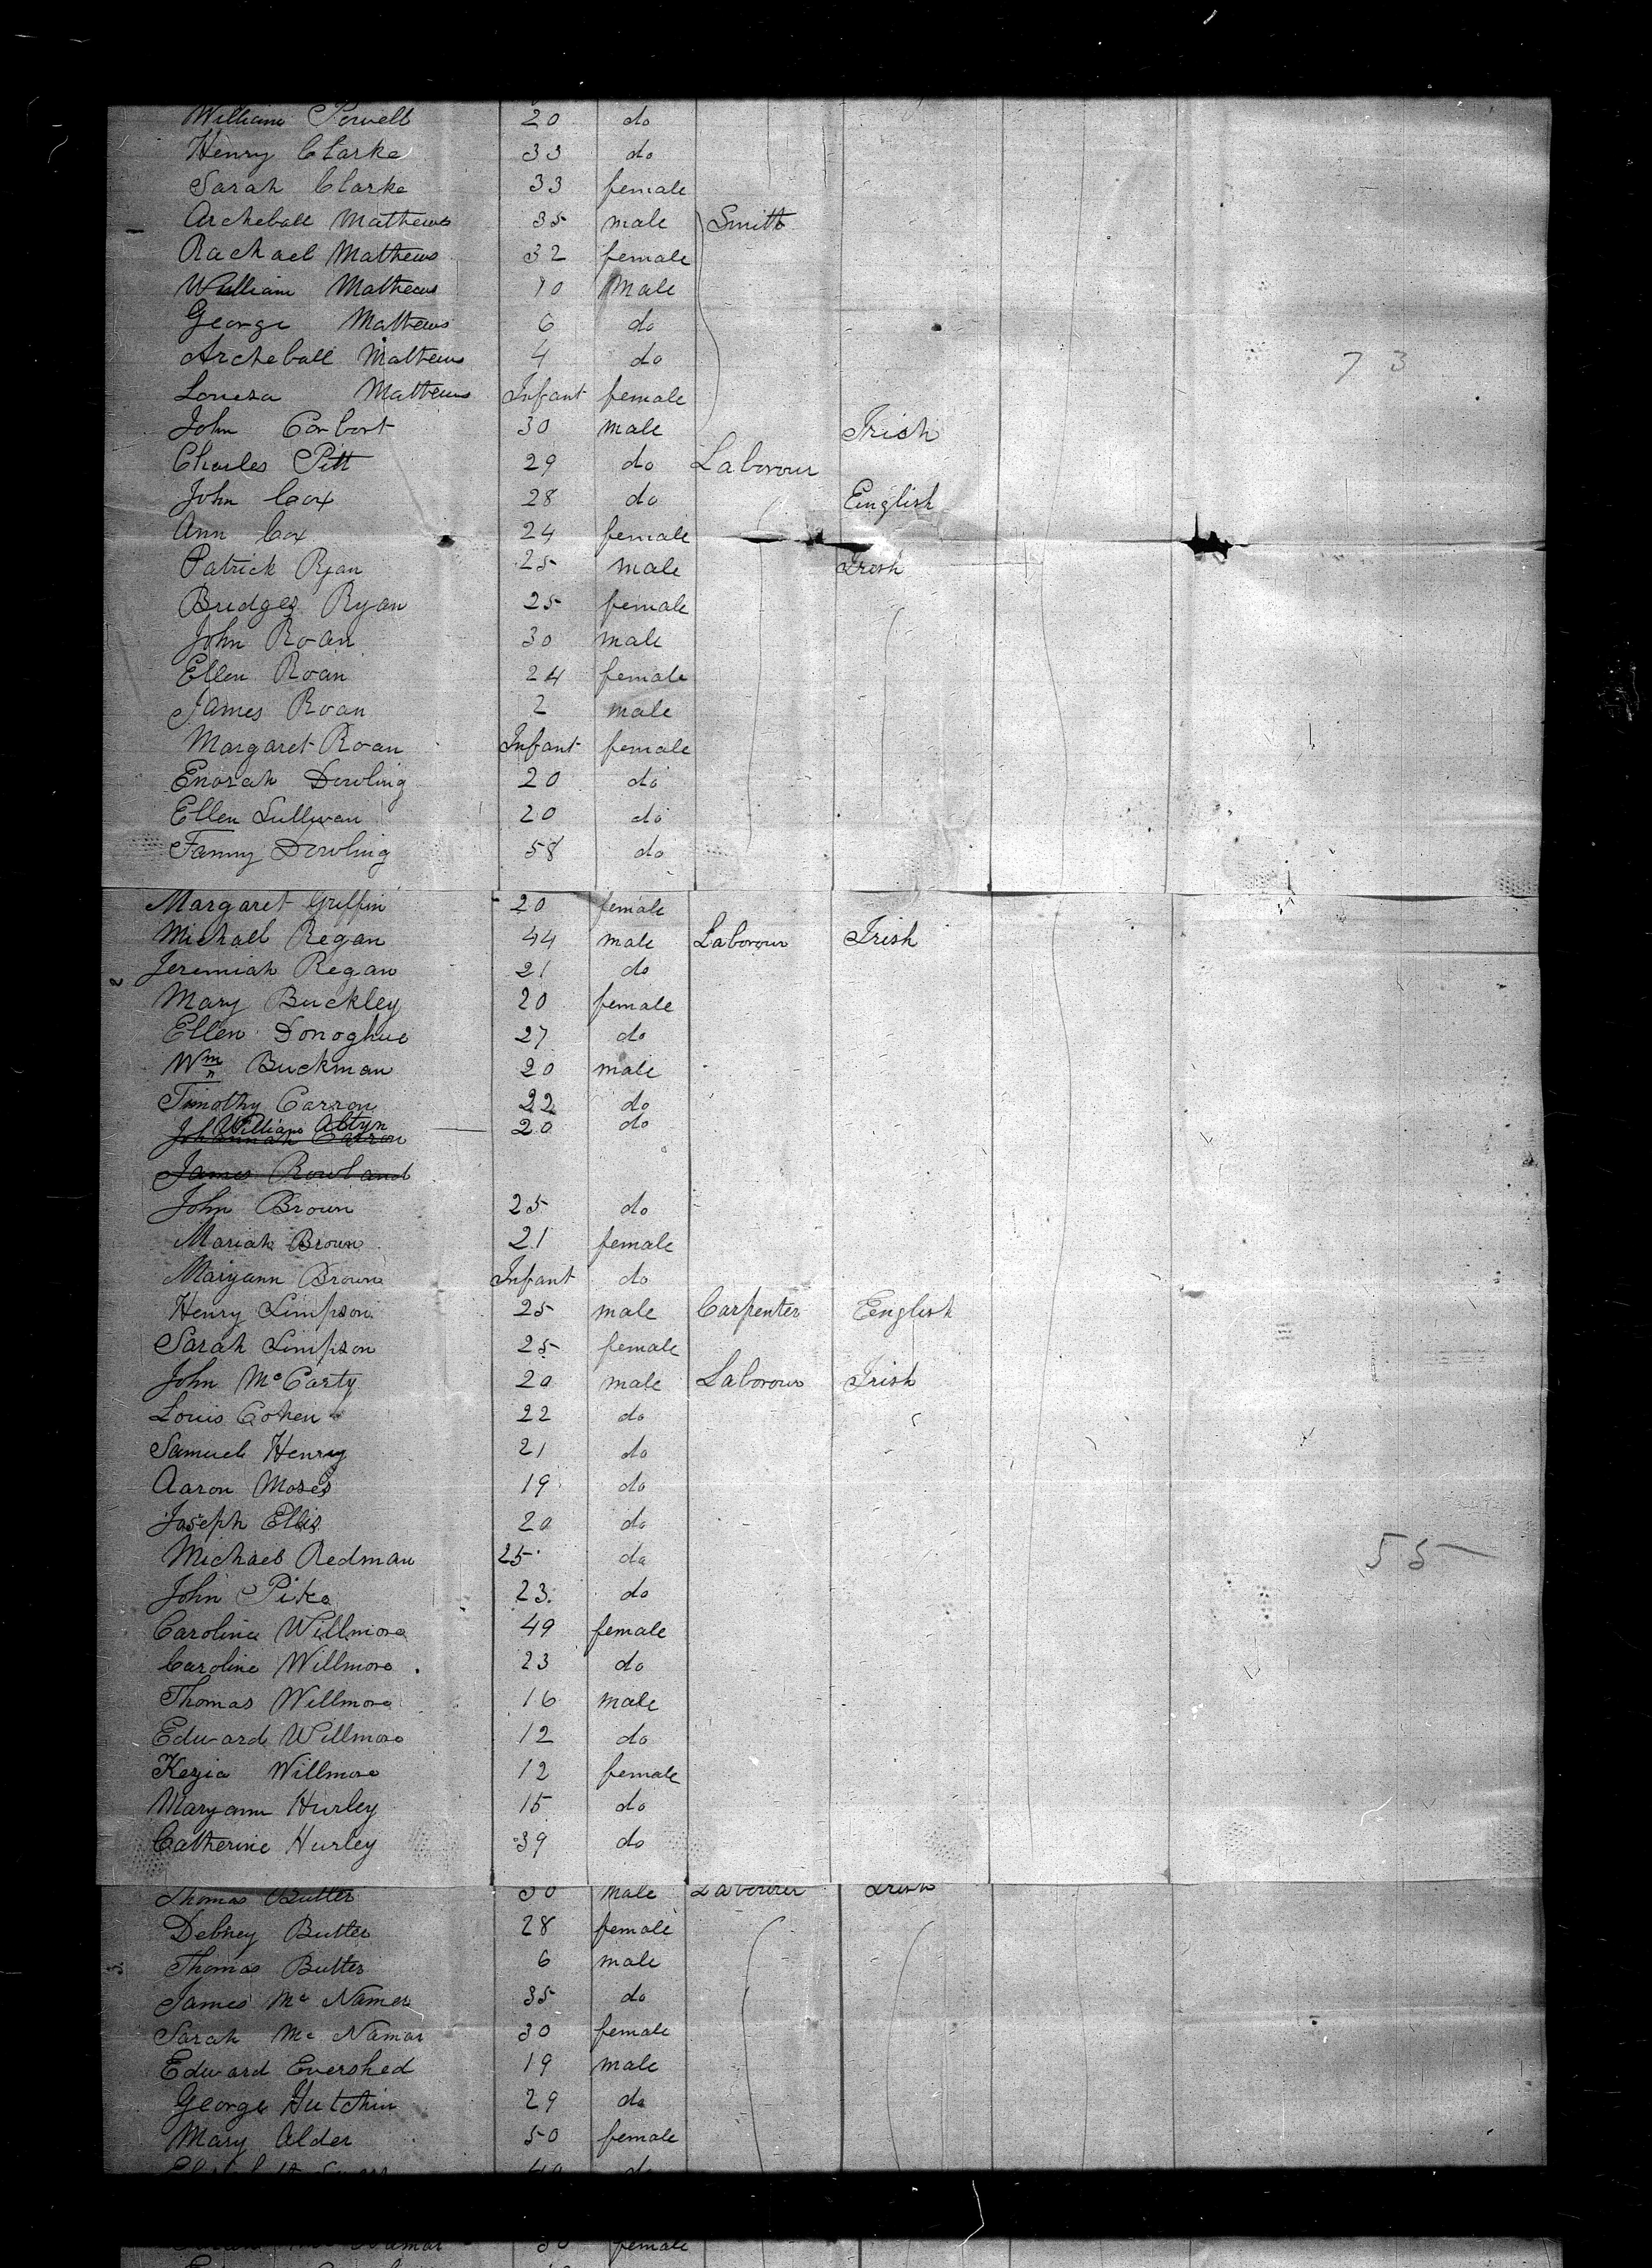 William Powell 20 do
Henry Clarke 33 do
Sarah Clarke 33 female
Archeball Mathews 35 male Smith
Rachael Mathews 32 female
William Mathews 10 Male
George Mathews 6 do
Archeball Mathews 4 do
73
Louesa Mathews Infant female
John Corbort 30 male Irish
Charles Pitt 29 do Laborour
John Cox 28 do English
Ann Cox 24 female
Patrick Ryan 25 male Irish
Bridget Ryan 25 female
John Roan 30 male
Ellen Roan 24 female
James Roan 2 male
Margaret Roan Infant female
Enorah Dowling 20 do
Ellen Sullivan 20 do
Fanny Dowling 58 do
Margaret Griffin 20 female
Michael Regan 44 male Laborour Irish
2 Jeremiah Regan 21 do
Mary Buckley 20 female
Ellen Donoghue 27 do
Wm Buckman 20 male
Timothy Carron 22 do
William 20 do
Johannah Carron
James Rowland
John Brown 25 do
Mariah Brown 21 female
Maryann Brown Infant do
Henry Simpson 25 male Carpenter English
Sarah Simpson 25 female
John McCarty 20 male Laborour Irish
Louis Cohen 22 do
Samuel Henry 21 do
Aaron Moses 19 do
Joseph Ellis 20 do
Michael Redman 25 do
55
John Pike 23 do
Caroline Willmore 49 female
Caroline Willmore 23 do
Thomas Willmore 16 male
Edward Willmore 12 do
Kezia Willmore 12 female
Maryann Hurley 15 do
Catherine Hurley 39 do
Thomas Butler 30 male Labourer Irish
Debney Butler 28 female
3 Thomas Butler 6 male
James Mc Namer 35 do
Sarah Mc Namar 30 female
Edward Evershed 19 male
George Hutchin 29 do
Mary Alder 50 female
do
Namar 30 female